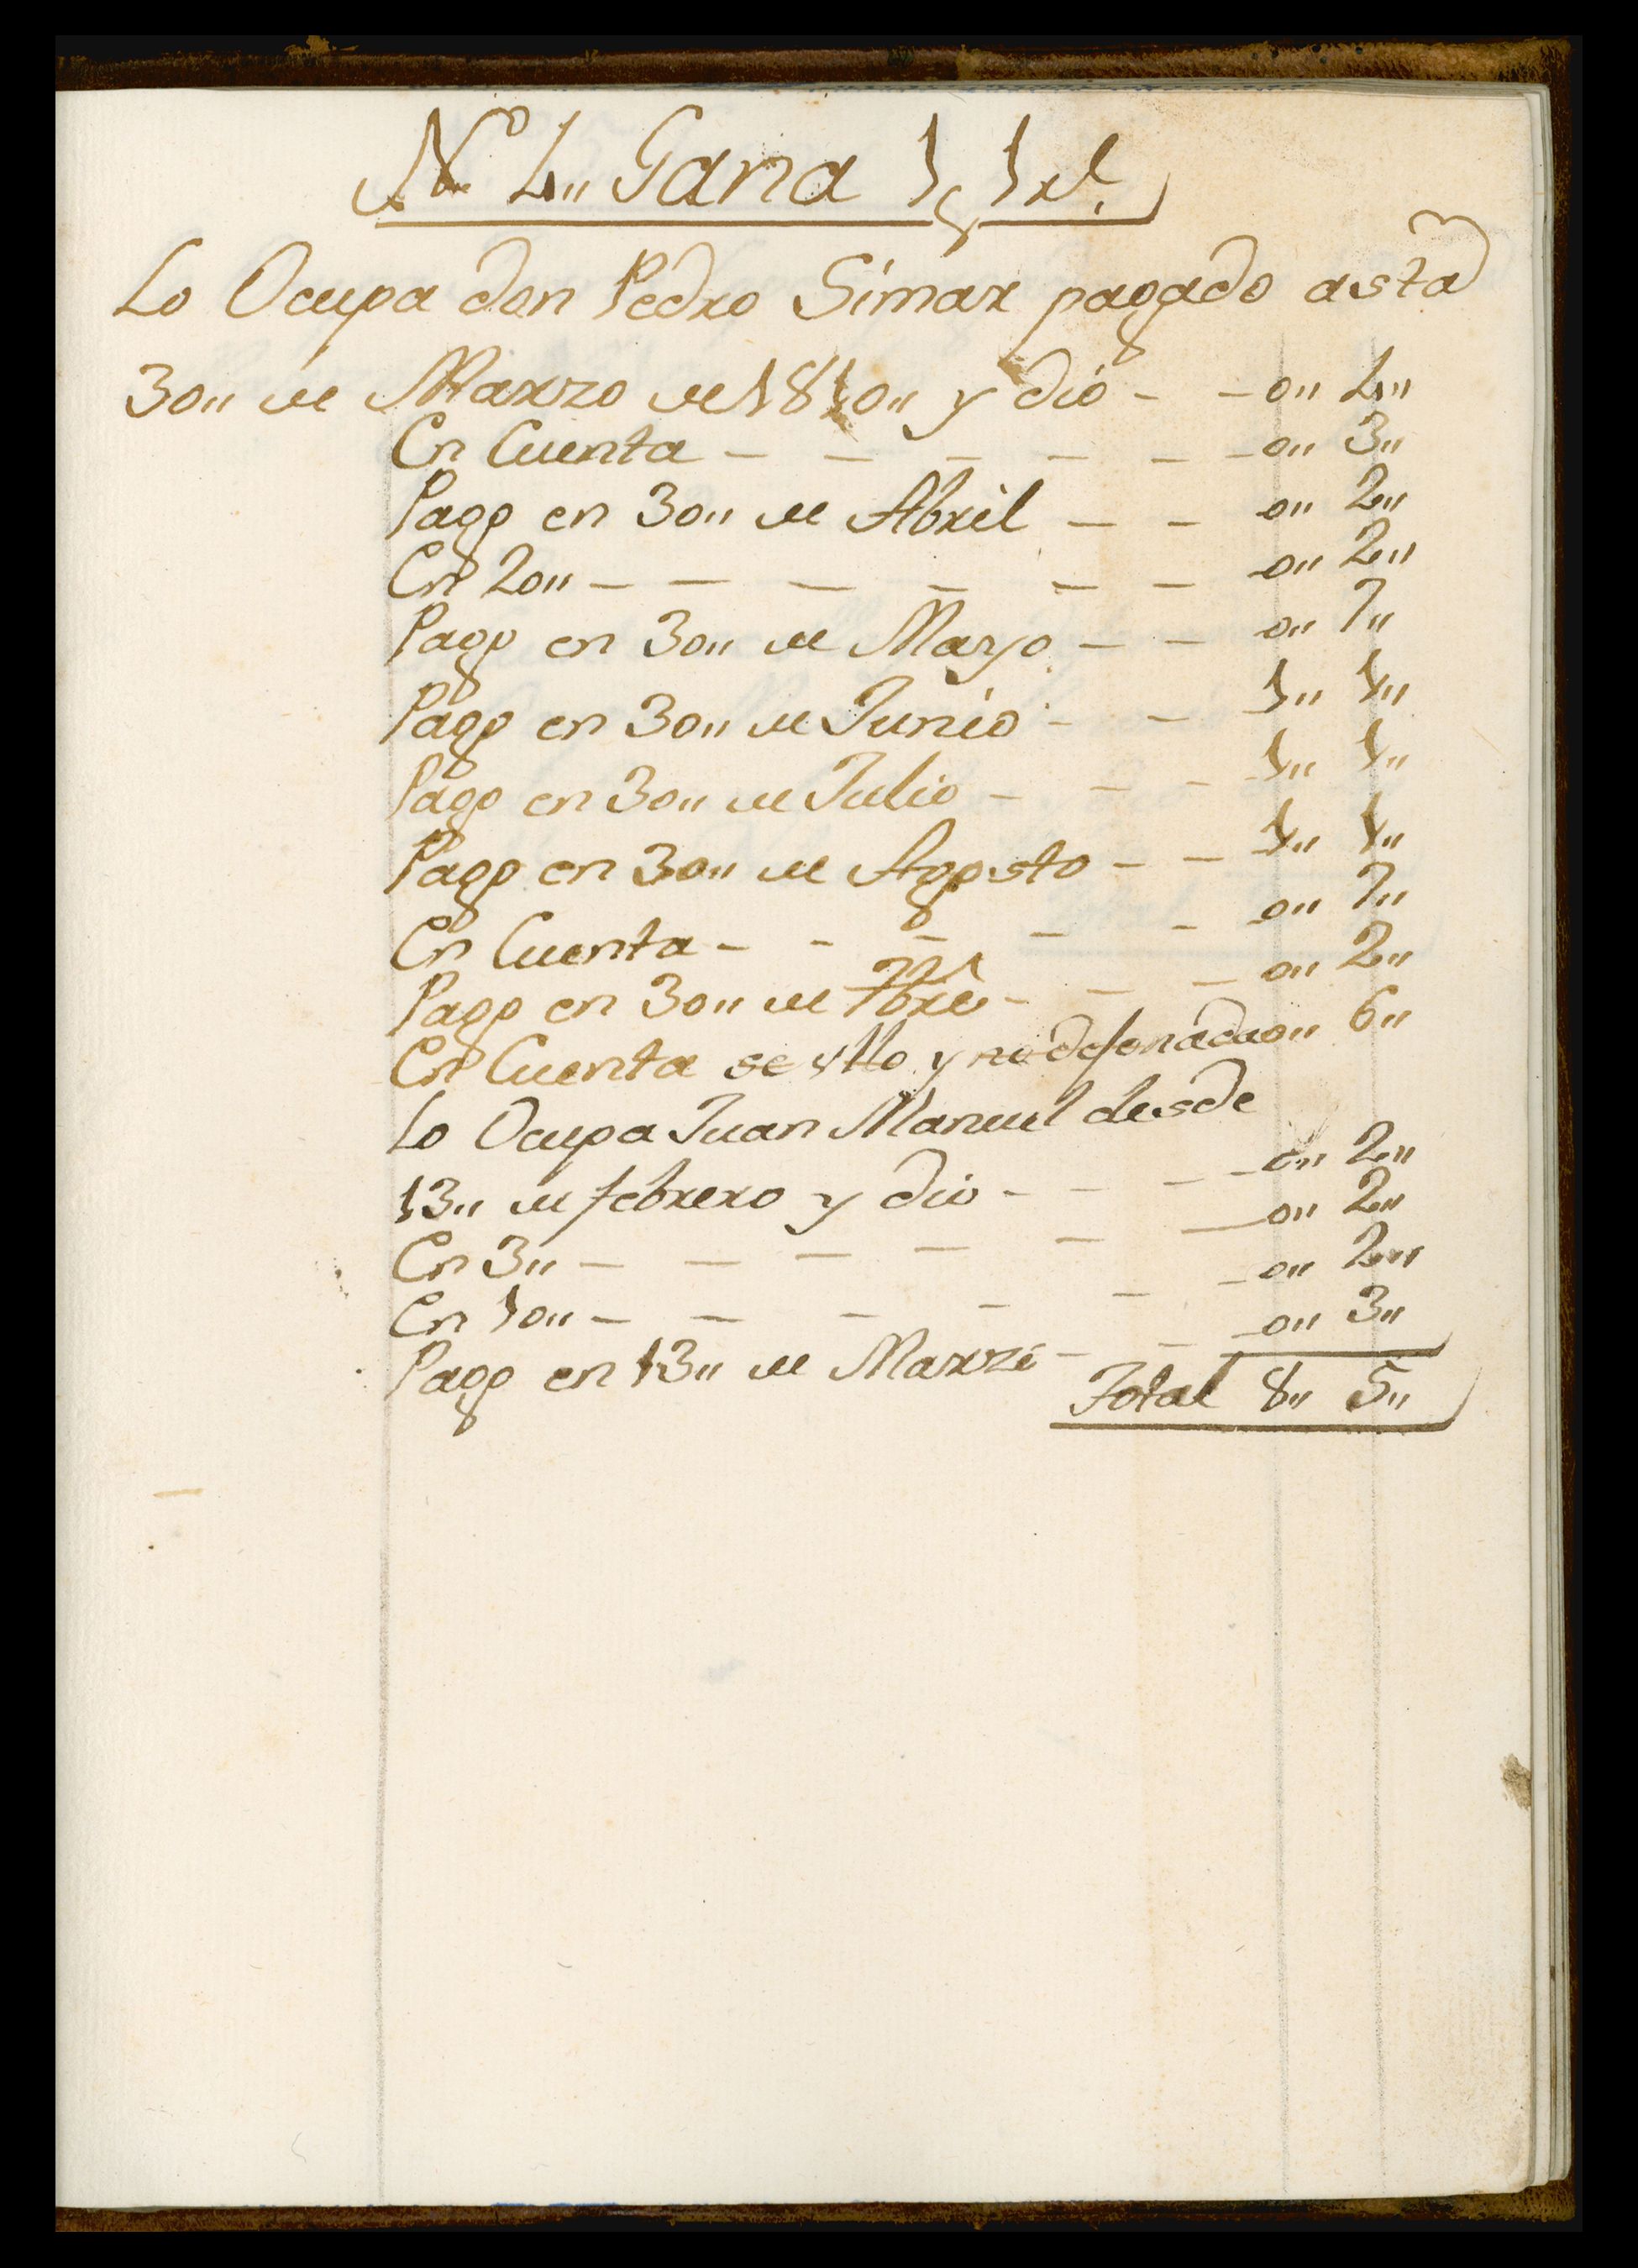 No 4,, Gana 1 p 1 rl.
Lo Ocupa don Pedro Simar pagado asta
30,, de Marzo de 1810,, y dio - - 0,, 4,,
En Cuenta - - - - - - 0,, 3,,
Pago en 30,, de Abril - - 0,, 2,,
En 20,, - - - - - - 0,, 2,,
Pago en 30,, de Mayo - - 0,, 7,,
Pago en 30,, de Junio - - 1,, 1,,
Pago en 30,, de Julio - - - 1,, 1,,
Pago en 30,, de Agosto - - 1,, 1,,
En Cuenta - - - - - 0,, 7,,
Pago en 30,, de 7bre - - - 0,, 2,,
En Cuenta se y no dejo nada 0,, 6,,
Lo Ocupa Juan Manuel desde
13,, de febrero y dio - - - - 0,, 2,,
En 3,, - - - - - - 0,, 2,,
En 10,, - - - - - - 0,, 2,,
Pago en 13,, de Marzo - - - 0,, 3,,
Total 8,, 5,,